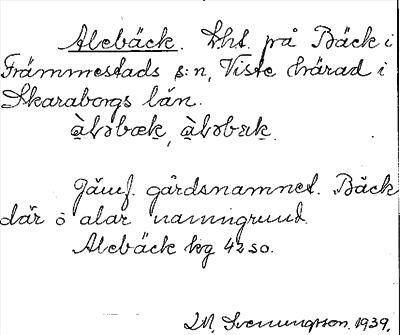 Alebäck. Lht. på Bäck i
Främmestads s:n, Viste härad i
Skaraborgs län.
àləbæk, àləbæk.
Jämf. gårdsnamnet. Bäck
där ö alar namngrund.
Alebäck hg 4250.
Svenungsson. 1939.